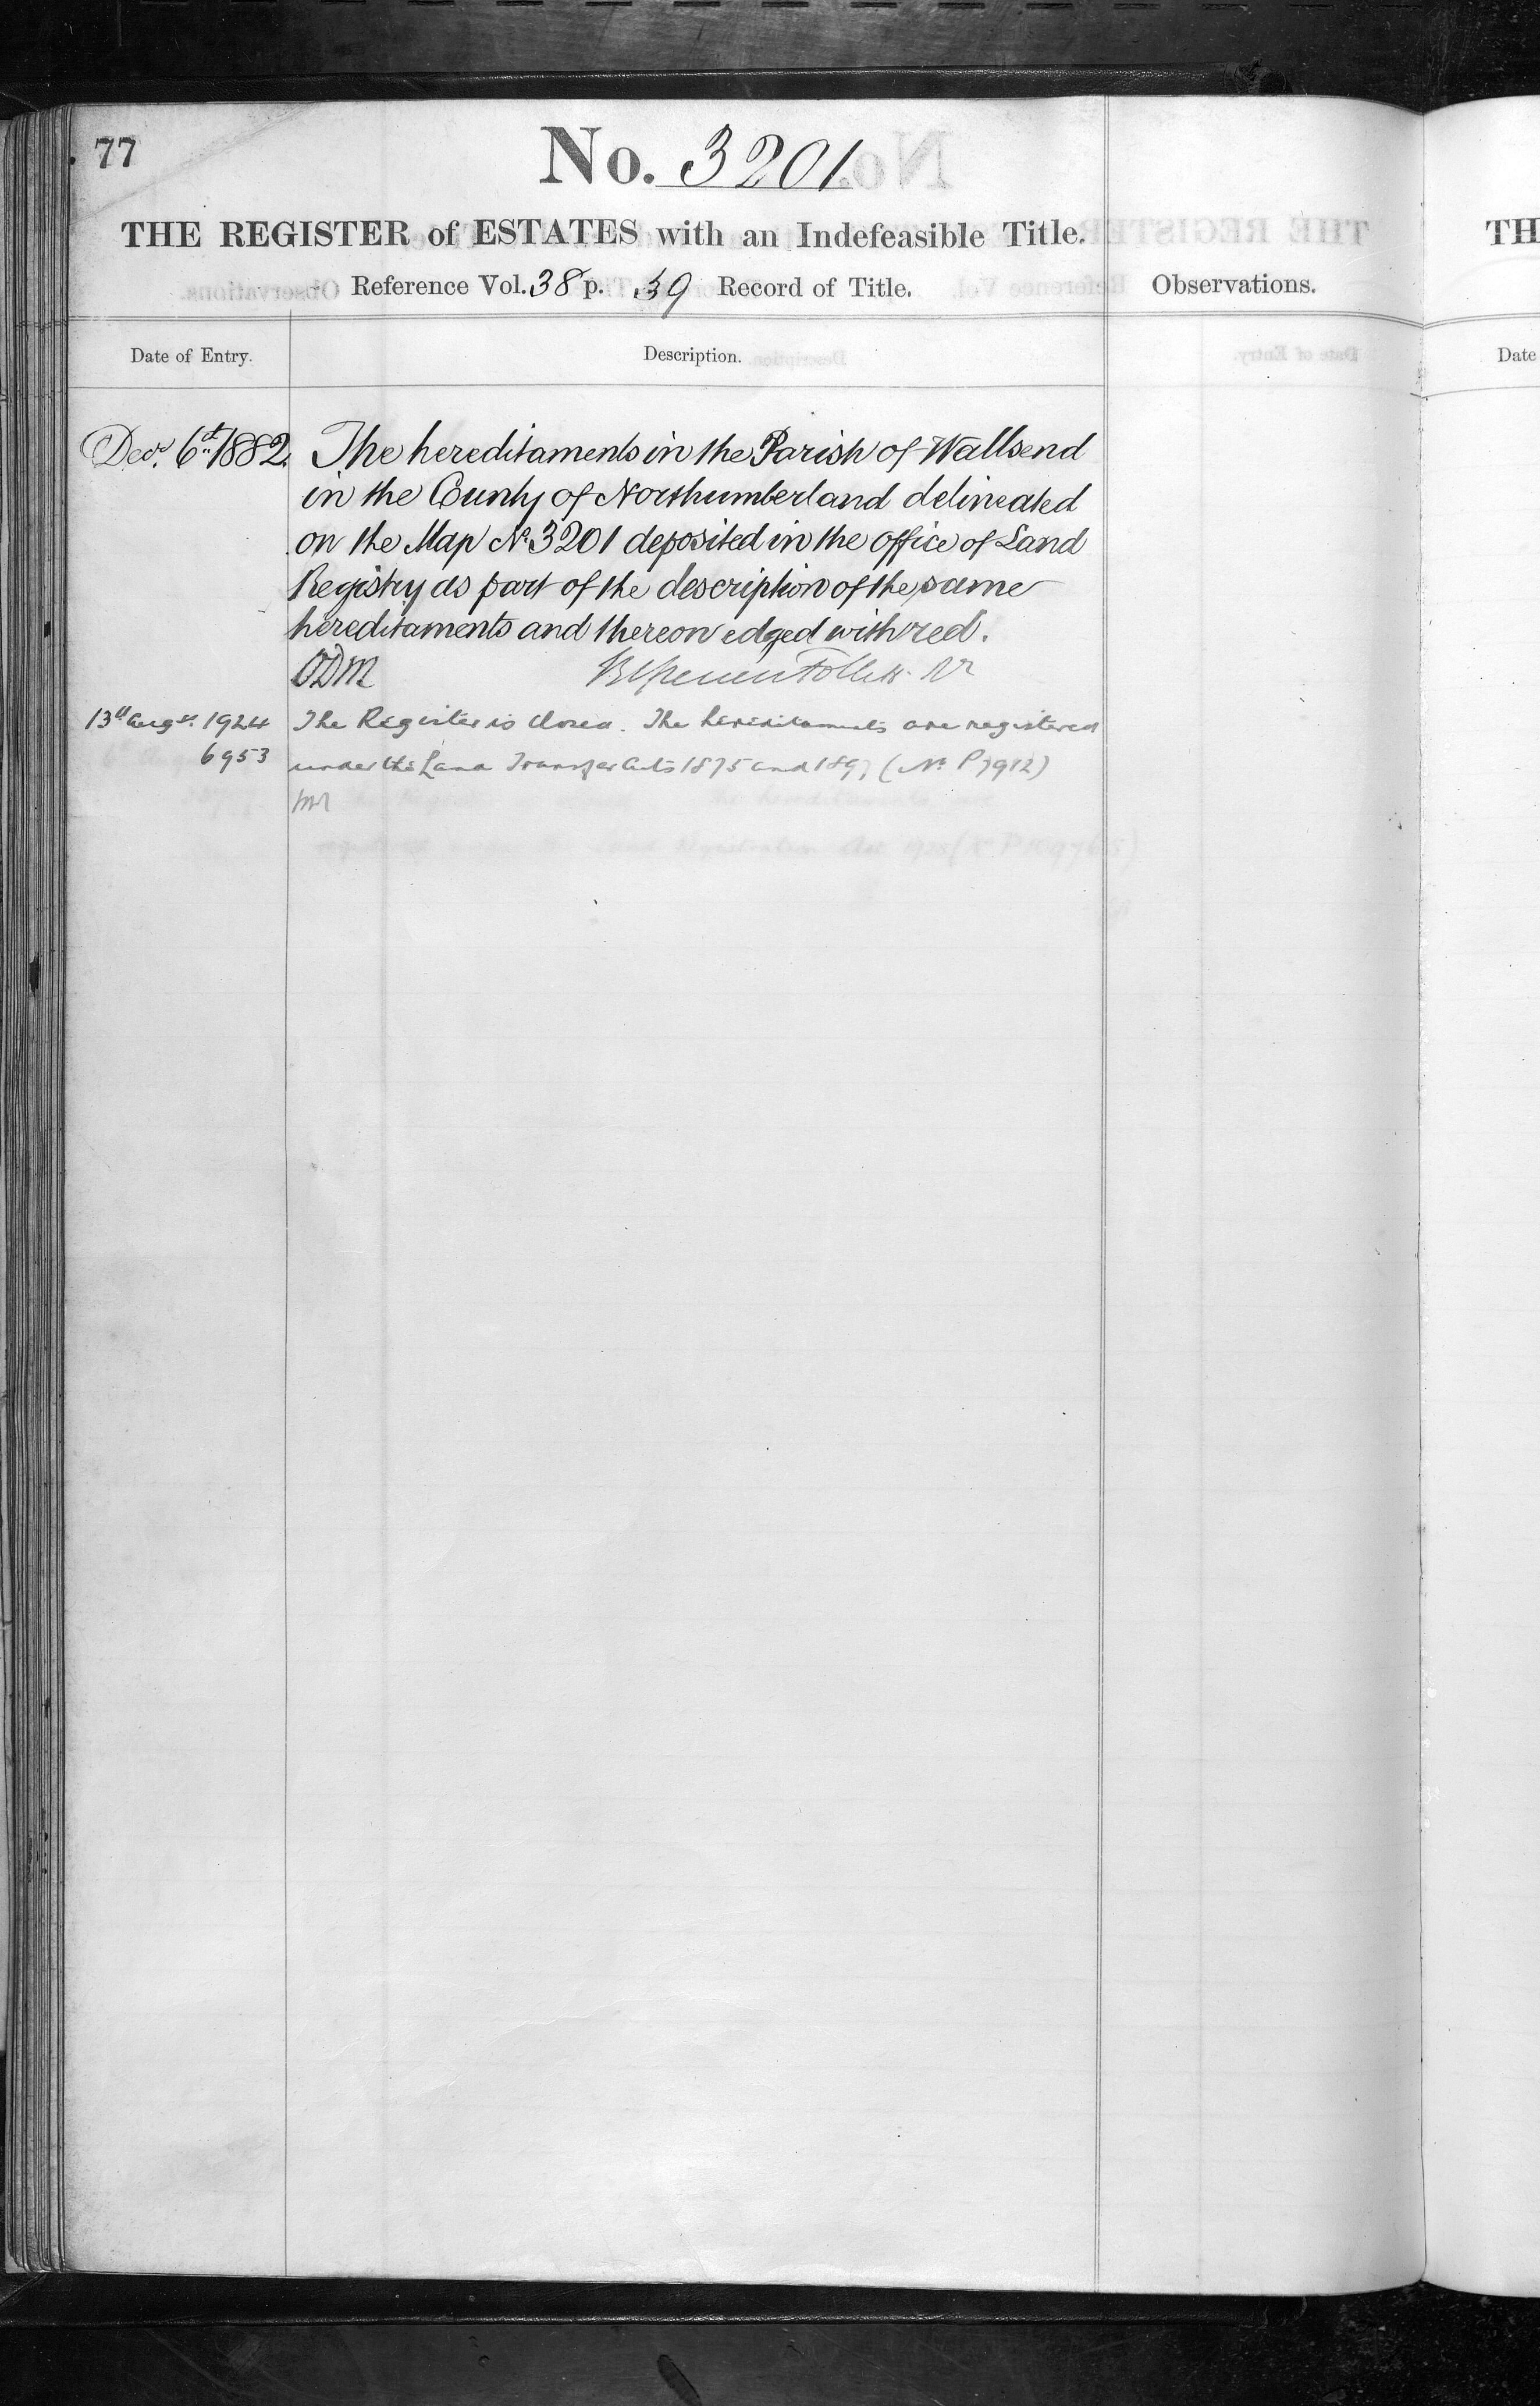 77
No. 3201
THE REGISTER of ESTATES with an Indefeasible Title.
Reference Vol. 38 p. 39 Record of Title.
Observations.
Date of Entry.
Description.
Decr. 6th 1882. The hereditaments in the Parish of Wallsend
in the County of Northumberland delineated
on the Map No. 3201 deposited in the office of Land
Registry as part of the description of the same
hereditaments and thereon edged with red.
ODM
13th Augst. 1924 The Register is closed. The hereditaments are registered
6953 under the Land Transfer Acts 1875 and 1897 (No. P7912)
TH
Date